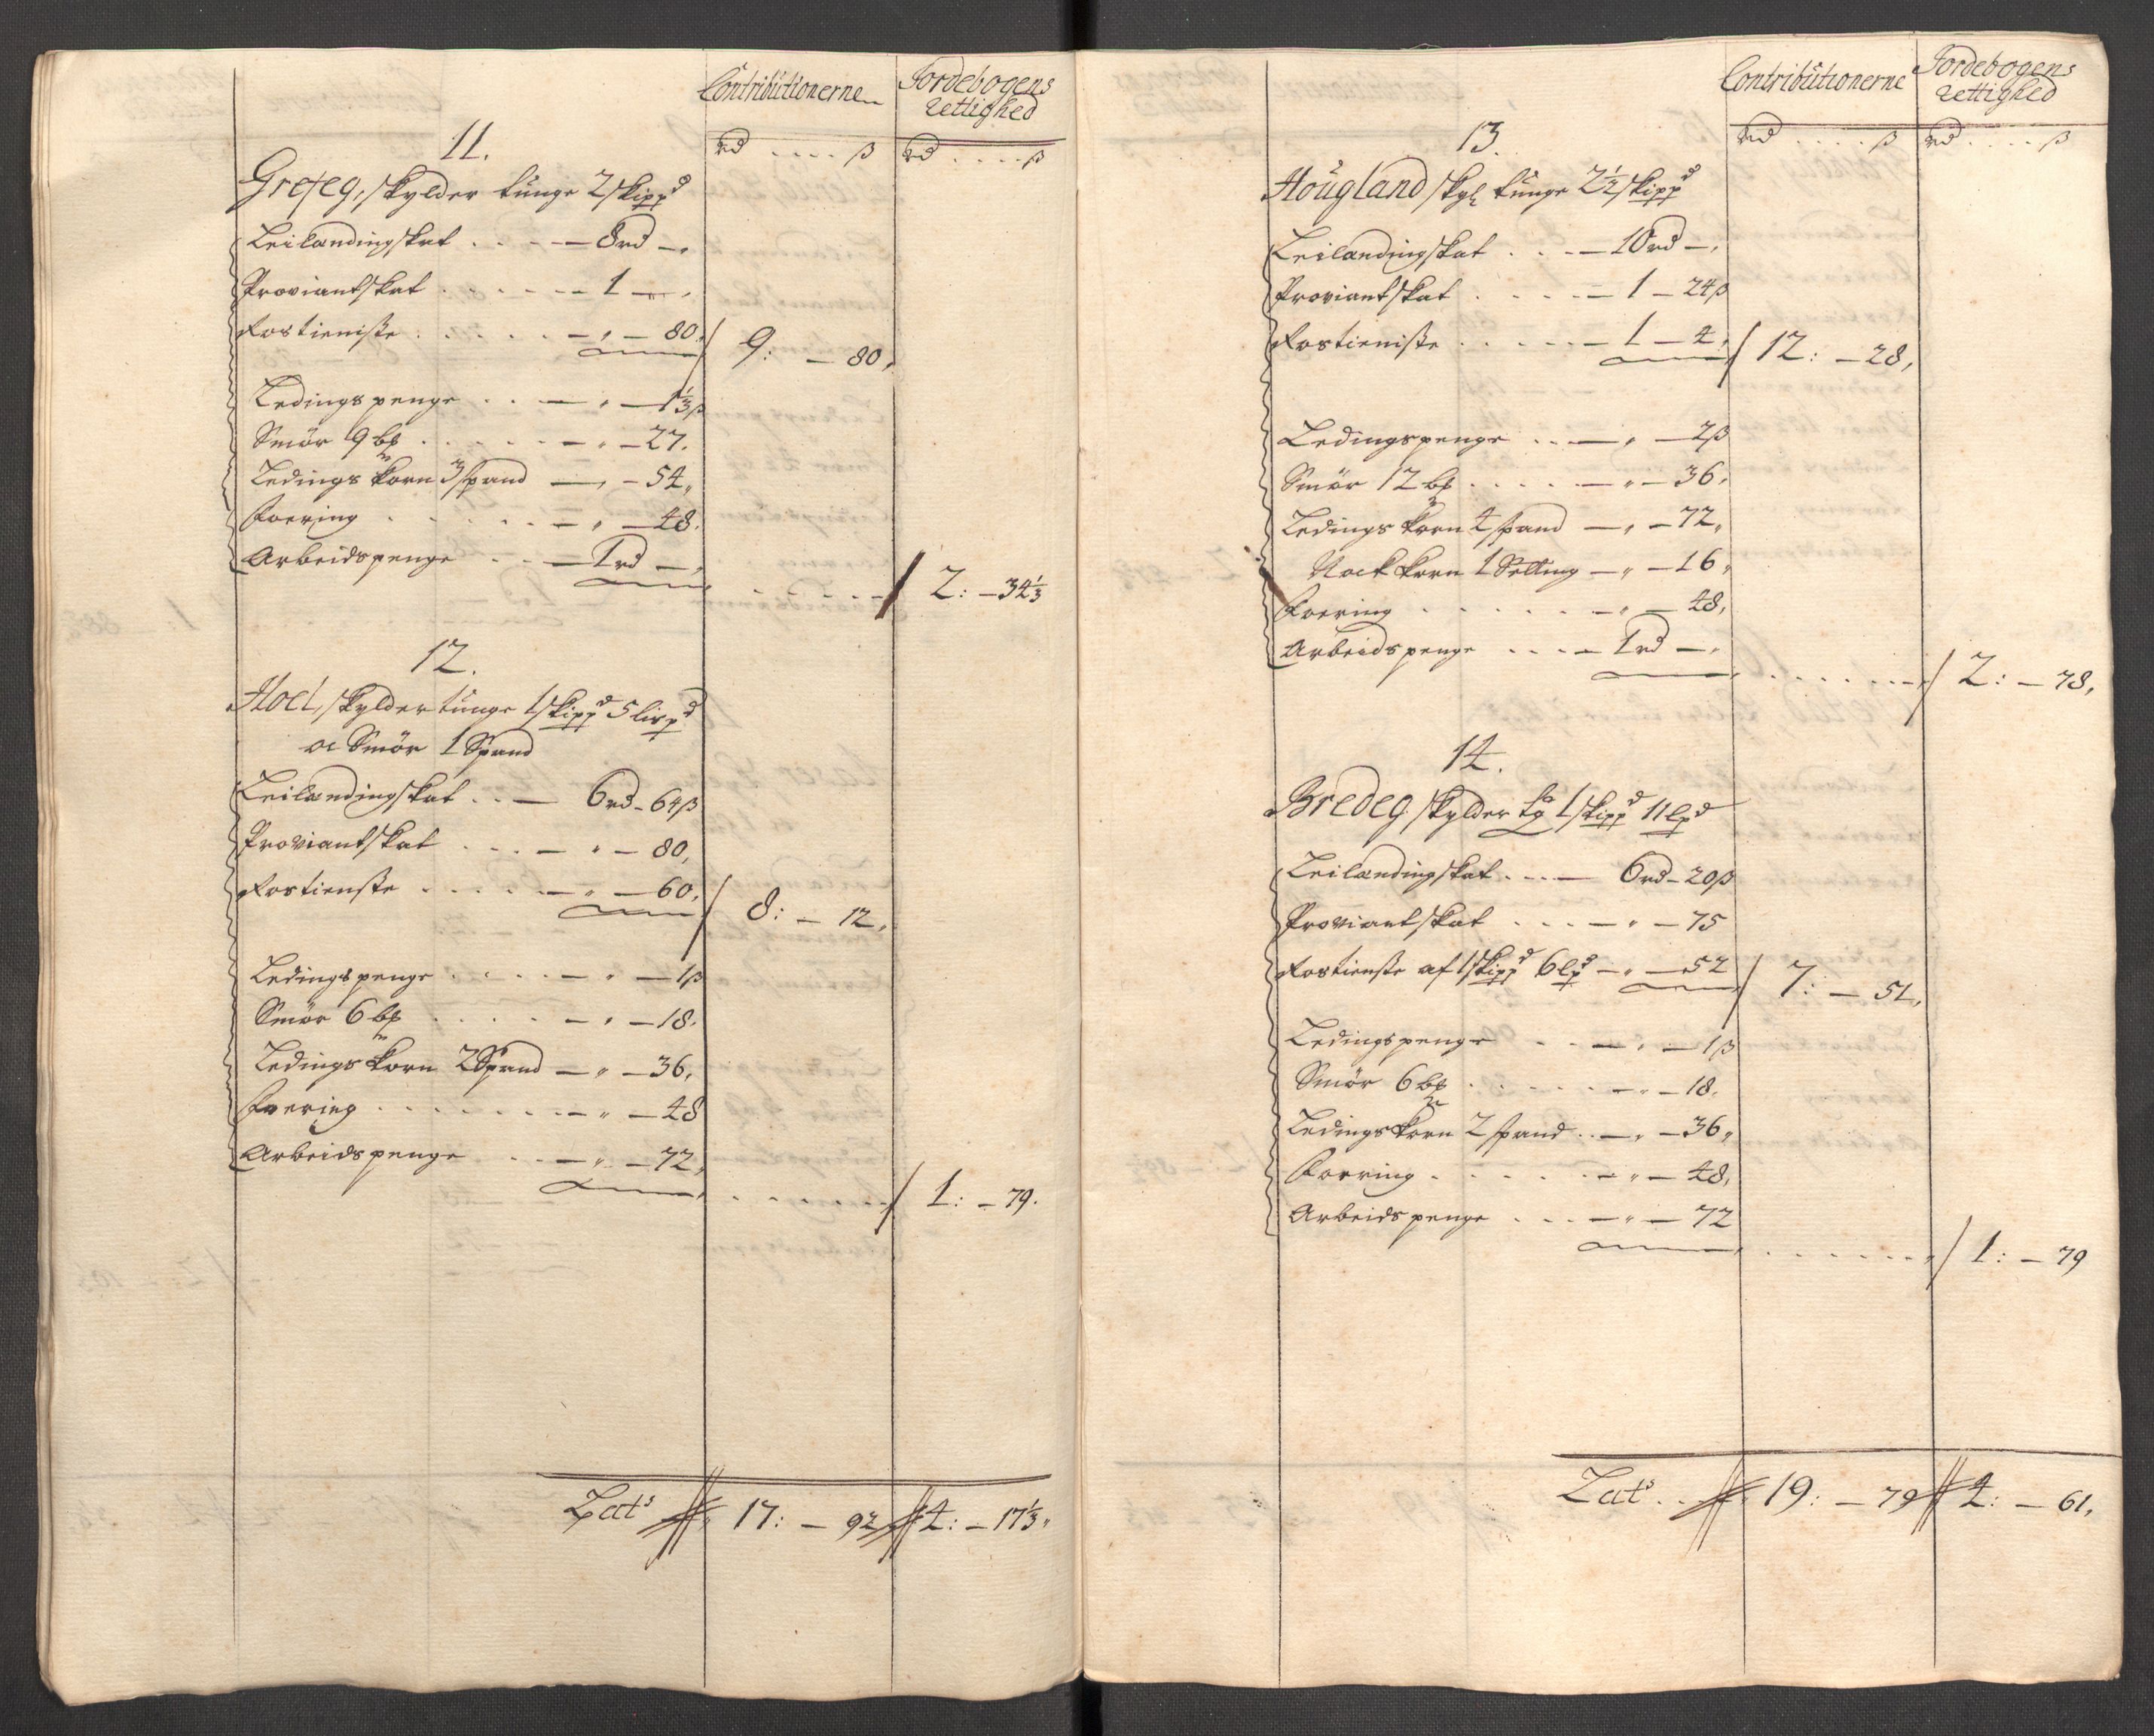 Contributionerne
Jordebogens
rettighed
rd .... ß
rd .... ß
11.
Grefeg, skylder tunge 2 skippd
Leilændingskat . . . — 8rd — ,
Proviantskat . . . . . . 1 — ,
Rostieniste . . . . . — „ — 80. / 9: — 80,
Ledingspenge . . . — „ — 1⅓ß
Smør 9 bp . . . . . — „ — 27.
Ledings korn 3 spand — „ — 54,
Foering . . . . . . — „ — 48.
Arbeidspenge . . . — 1rd — ,
. . . . . / 2: — 34⅓
12.
Hoel, skylder tunge 1 skippd 5 lispd
oc Smør 1 Spand
Leilændingskat . . — 6rd - 64ß
Proviantskat . . . — „ — 80,
Rostienste . . . . — „ — 60, / 8: — 12,
Ledingspenge . . . . — „ — 1ß
Smør 6 bp . . . . — „ — 18.
Ledings korn 2 Spand — „ — 36,
Foering . . . . . . . — „ — 48
Arbeidspenge . . . — „ — 72,
. . . . . / 1: — 79.
Lats 17: — 92 4: — 17⅓,
Contributionerne
Jordebogens
rettighed
rd .... ß
rd .... ß
13.
Hougland skyl tunge 2½ skippd
Leilændingskat . . . — 10rd — ,
Proviantskat . . . . — 1 — 24ß
Rostieniste . . . . . — 1 — 4, / 12: — 28,
Ledingspenge . . . — „ — 2ß
Smør 12 bp . . . . . — „ — 36,
Ledings korn 4 spand — „ — 72,
Nock korn 1 Setting — „ — 16,
Foering . . . . . . — „ — 48,
Arbeidspenge . . . . — 1rd — ,
. . . . . / 2: — 78,
14.
Bredeg skylder tg 1 skippd 11 lpd
Leilændingskat . . . — 6rd - 20ß
Proviantskat . . . — „ — 75
Rostienste af 1 skippd 6 lpd — „ — 52 / 7: — 51,
Ledingspenge . . . — „ — 1ß
Smør 6 bp . . . . . — „ — 18.
Ledings korn 2 spand . . — „ — 36,
Foering . . . . . . — „ — 48,
Arbeidspenge . . . — „ — 72
. . . . . / 1: — 79
Lats . . 19: — 79 4: — 61,